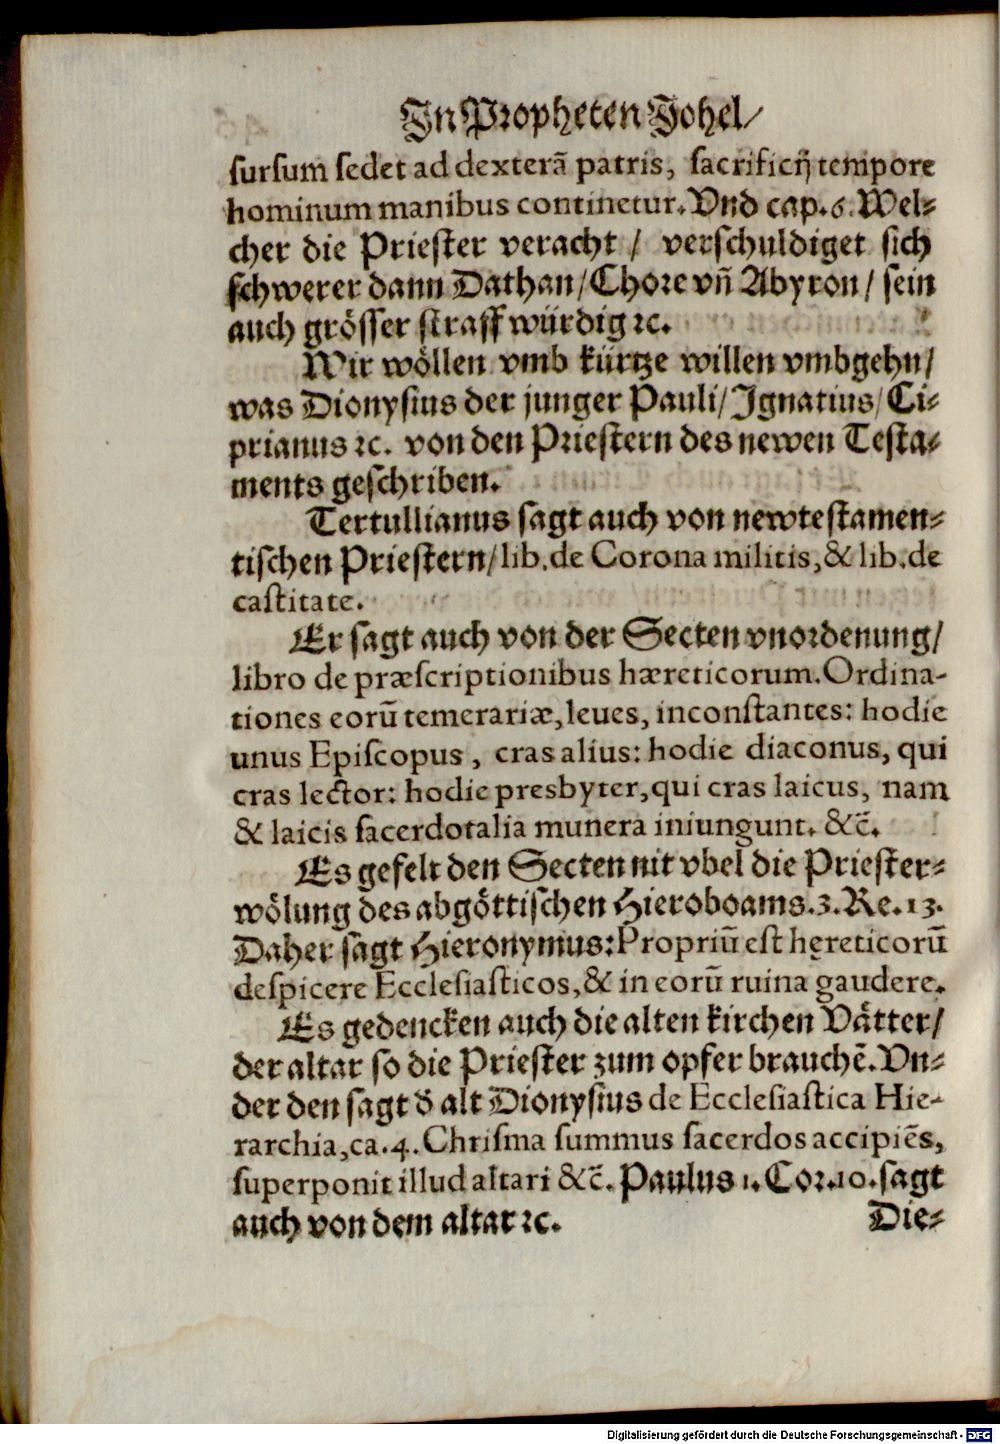 In Propheten Johel/
sursum sedet ad dexterã patris, sacrificij tempore
hominum manibus continetur. Vnd cap. 6. Wel⸗
cher die Priester veracht / verschuldiget sich
schwerer dann Dathan/ Chore vñ Abyron/ sein
auch grösser straff würdig ꝛc.
Wir wöllen vmb kürtze willen vmbgehn/
was Dionysius der junger Pauli/ Ignatius/ Ci⸗
prianus ꝛc. von den Priestern des newen Testa⸗
ments geschriben.
Tertullianus sagt auch von newtestamen⸗
tischen Priestern/ lib. de Corona militis, & lib. de
castitate.
Er sagt auch von der Secten vnordenung/
libro de præscriptionibus hæreticorum. Ordina-
tiones eorũ temerariæ, leues, inconstantes: hodie
unus Episcopus, cras alius: hodie diaconus, qui
cras lector: hodie presbyter, qui cras laicus, nam
& laicis sacerdotalia munera iniungunt. &c̃.
Es gefelt den Secten nit vbel die Priester⸗
wölung des abgöttischen Hieroboams. 3. Re. 13.
Daher sagt Hieronymus: Propriũ est hęreticorũ
despicere Ecclesiasticos, & in eorũ ruina gaudere.
Es gedencken auch die alten kirchen Vätter/
der altar so die Priester zum opfer brauchẽ. Vn⸗
der den sagt d̓ alt Dionysius de Ecclesiastica Hie-
rarchia, ca. 4. Chrisma summus sacerdos accipiẽs,
superponit illud altari &c̃. Paulus 1. Cor. 10. sagt
auch von dem altar ꝛc.
Die⸗
Digitalisierung gefördert durch die Deutsche Forschungsgemeinschaft - DFG